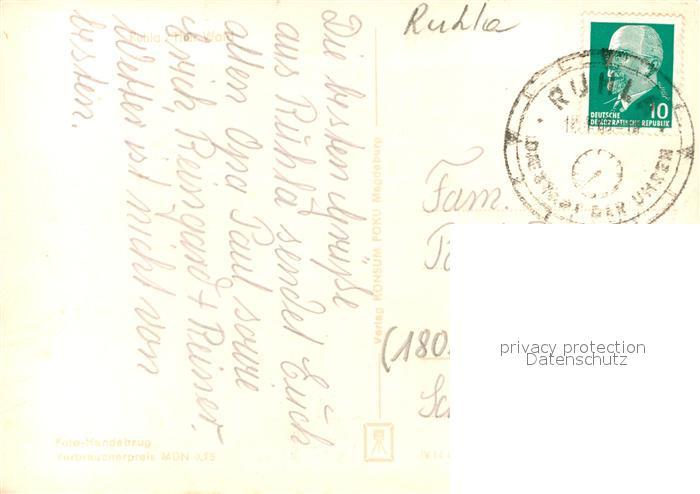 Ruhla
Ruhla Thür. Wald
Die besten Grüße
aus Ruhla sendet Euch
allen Opa Paul sowie
Erich, Reingard + Reiner.
Wetter ist nicht vom
besten.
Foto-Handabzug
Verbraucherpreis MDN 0,25
Verlag KONSUM FOKU Magdeburg
RUHLA
DER UHREN
10
DEUTSCHE
DEMOKRATISCHE REPUBLIK
Fam.
(180
privacy protection
Datenschutz